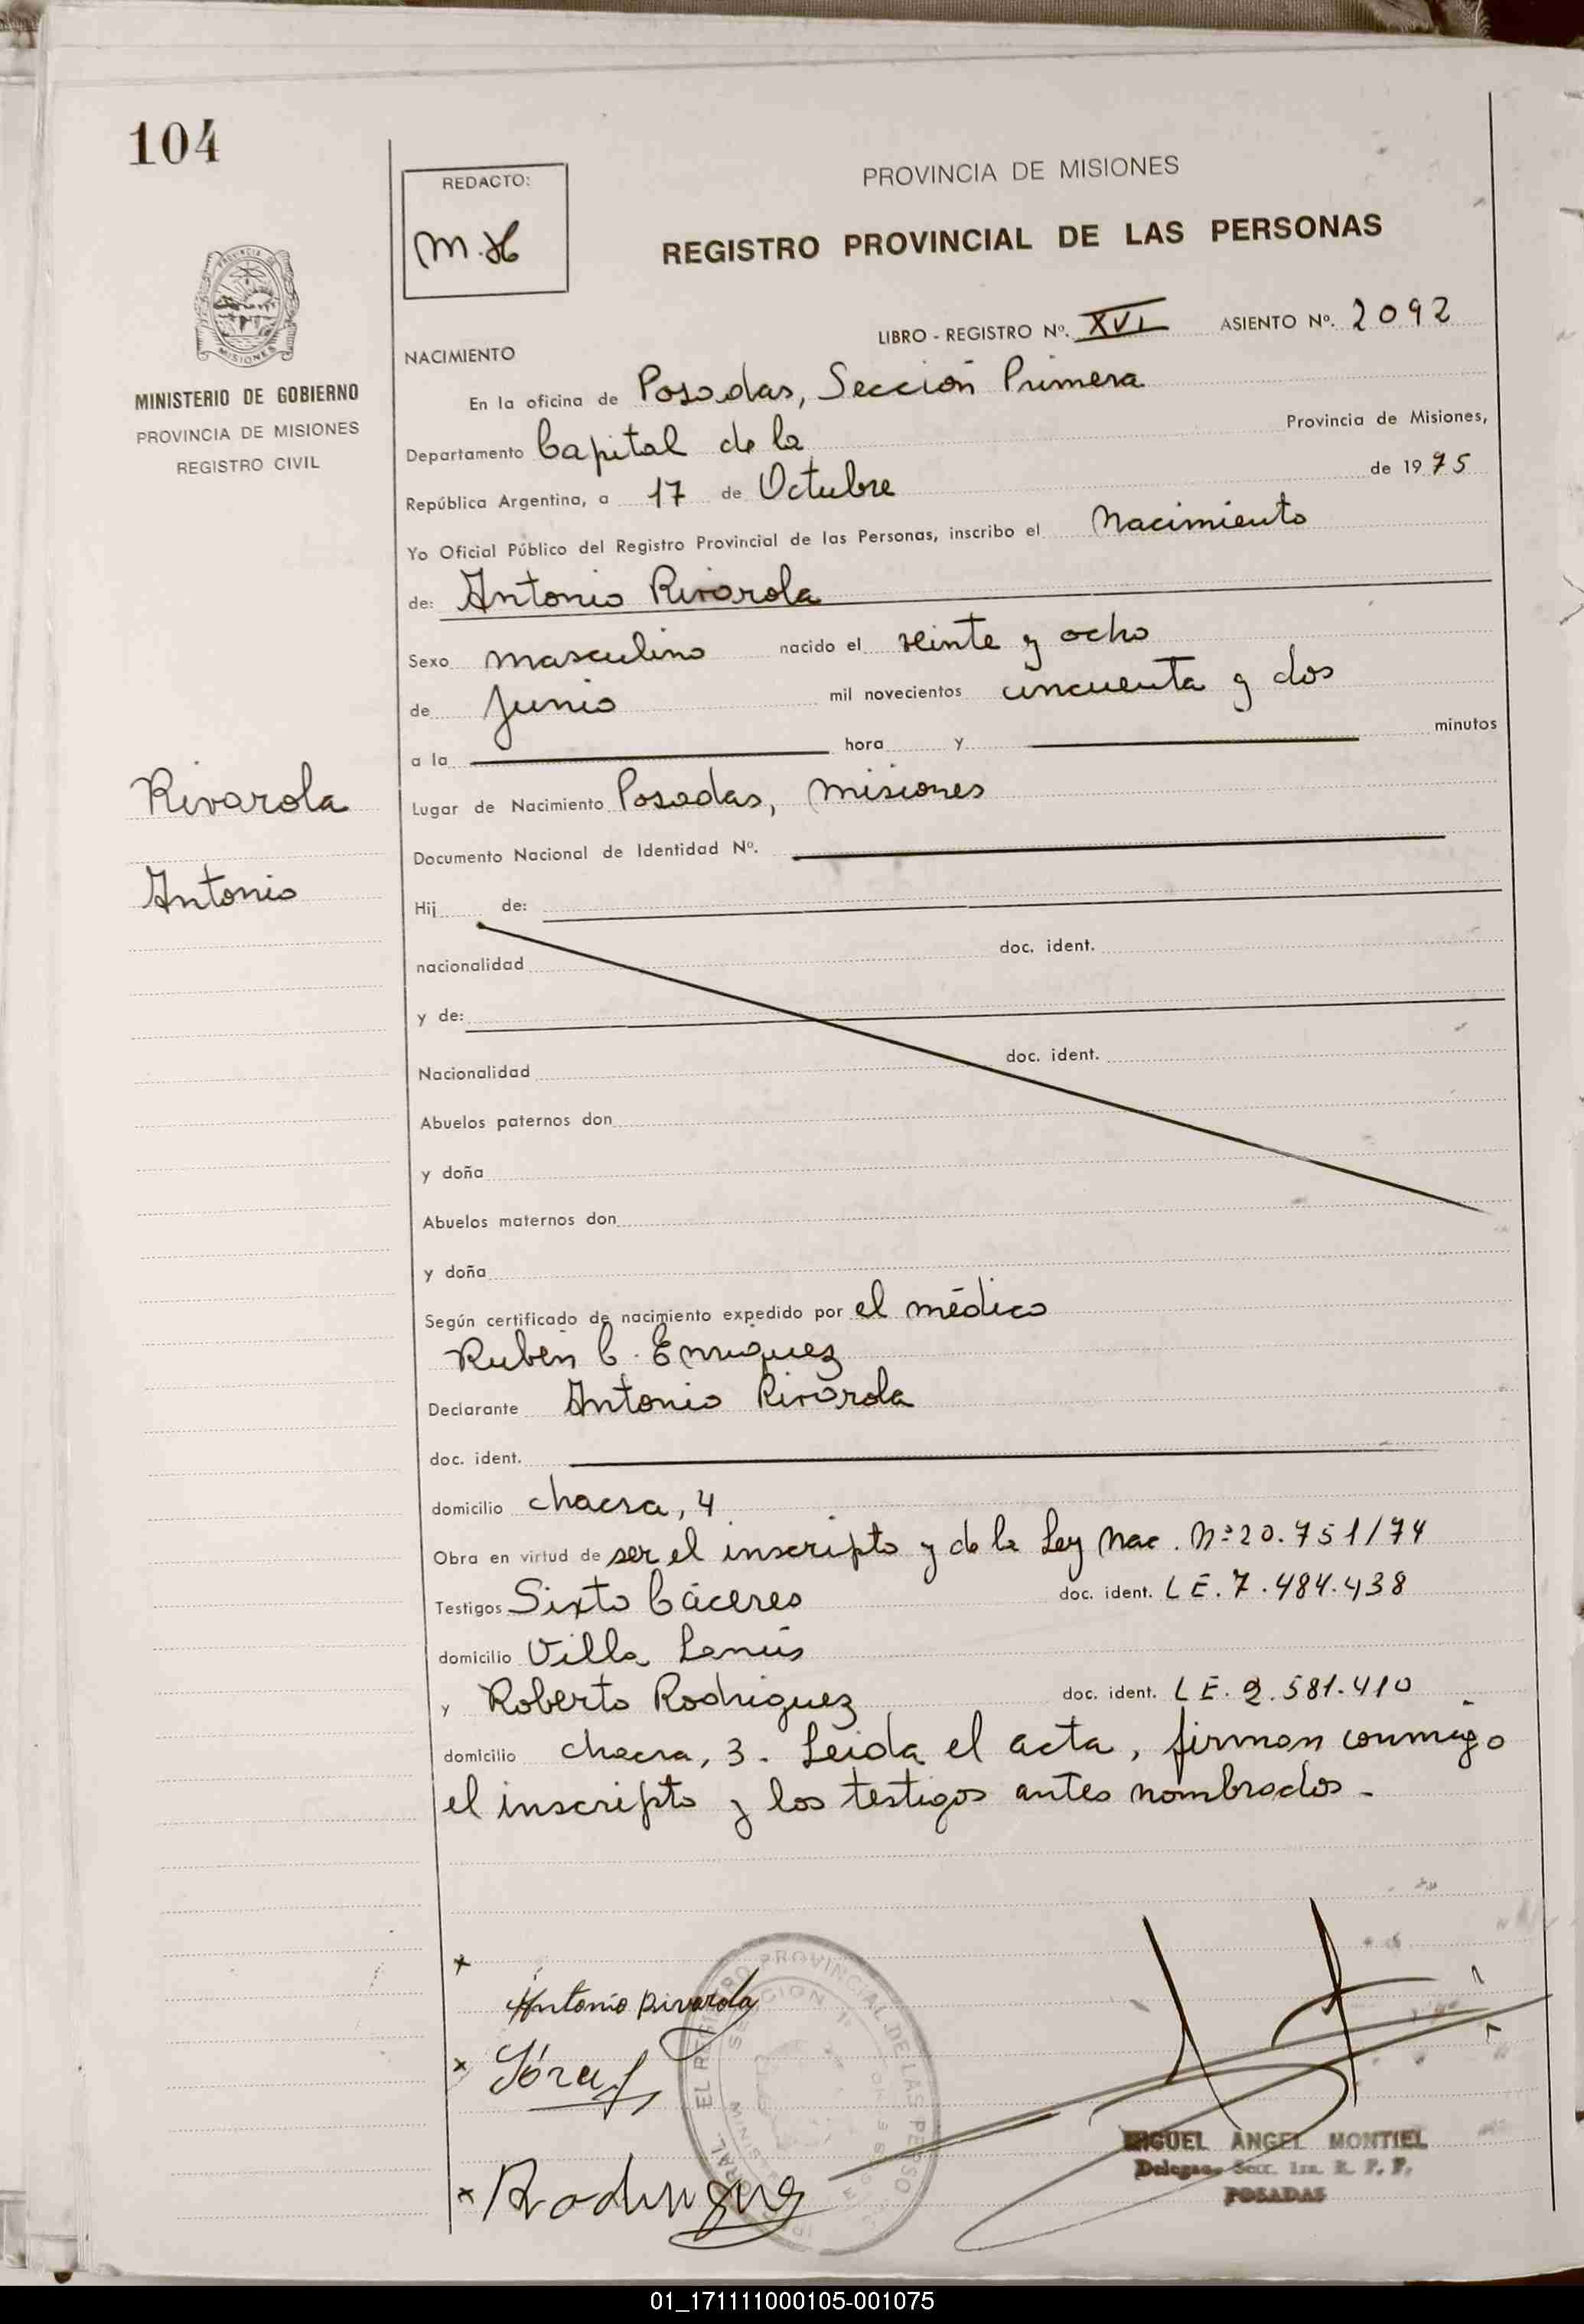 104
REDACTO:
M.H
PROVINCIA DE MISIONES
REGISTRO PROVINCIAL DE LAS PERSONAS
LIBRO - REGISTRO Nº. XVI ASIENTO Nº. 2092
MISIONES
MINISTERIO DE GOBIERNO
PROVINCIA DE MISIONES
REGISTRO CIVIL
NACIMIENTO
En la oficina de Posadas, Sección Primera
Departamento Capital de la Provincia de Misiones,
República Argentina, a 17 de Octubre de 1975
Yo Oficial Público del Registro Provincial de las Personas, inscribo el Nacimiento
de: Antonio Rivarola
Sexo masculino nacido el veinte y ocho
de Junio mil novecientos cincuenta y dos
a la hora y minutos
Rivarola
Antonio
Lugar de Nacimiento Posadas, Misiones
Documento Nacional de Identidad Nº.
Hij de:
nacionalidad doc. ident.
y de:
Nacionalidad doc. ident.
Abuelos paternos don
y doña
Abuelos maternos don
y doña
Según certificado de nacimiento expedido por el médico
Rubén C. Enriquez
Declarante Antonio Rivarola
doc. ident.
domicilio chacra, 4
Obra en virtud de ser el inscripto y de la Ley Nac. Nº 20.751/74
Testigos Sixto Cáceres doc. ident. LE. 7.484.438
domicilio Villa Lanús
y Roberto Rodriguez doc. ident. LE. 2.581.410
domicilio chacra, 3. Leida el acta, firman conmigo
el inscripto y los testigos antes nombrados.-
Antonio Rivarola
Rodriguez
EL REGISTRO PROVINCIAL DE LAS PERSO
MIGUEL ANGEL MONTIEL
Delegado Secc. 1ra. R. P. P.
POSADAS
01_171111000105-001075